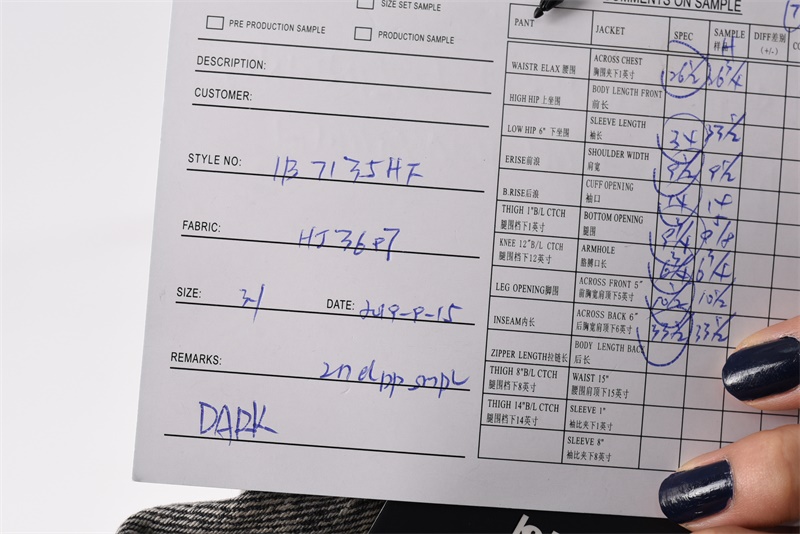 SIZE SET SAMPLE
COMMENTS ON SAMPLE
PRE PRODUCTION SAMPLE
PRODUCTION SAMPLE
DESCRIPTION:
CUSTOMER:
STYLE NO: 1B7135HF
FABRIC: HJ3687
SIZE: 31 DATE: 2019-9-15
REMARKS: 2nd pp smpl
DARK
PANT JACKET SPEC SAMPLE DIFF差别 (+/-)
WAISTR ELAX 腰围 ACROSS CHEST 胸围夹下1英寸
HIGH HIP 上坐围 BODY LENGTH FRONT 前长
LOW HIP 6" 下坐围 SLEEVE LENGTH 袖长 34 33 1/2
ERISE前浪 SHOULDER WIDTH 肩宽 9 1/2 9 1/2
B.RISE后浪 CUFF OPENING 袖口 14 14
THIGH 1"B/L CTCH 腿围裆下1英寸 BOTTOM OPENING 腿围
KNEE 12"B/L CTCH 腿围裆下12英寸 ARMHOLE 胳膊口长
LEG OPENING脚围 ACROSS FRONT 5" 前胸宽肩顶下5英寸 10 1/2 10 1/2
INSEAM内长 ACROSS BACK 6" 后胸宽肩顶下6英寸 33 1/2 33 1/2
ZIPPER LENGTH拉链长 BODY LENGTH BACK 后长
THIGH 8"B/L CTCH 腿围裆下8英寸 WAIST 15" 腰围肩顶下15英寸
THIGH 14"B/L CTCH 腿围裆下14英寸 SLEEVE 1" 袖比夹下1英寸
SLEEVE 8" 袖比夹下8英寸